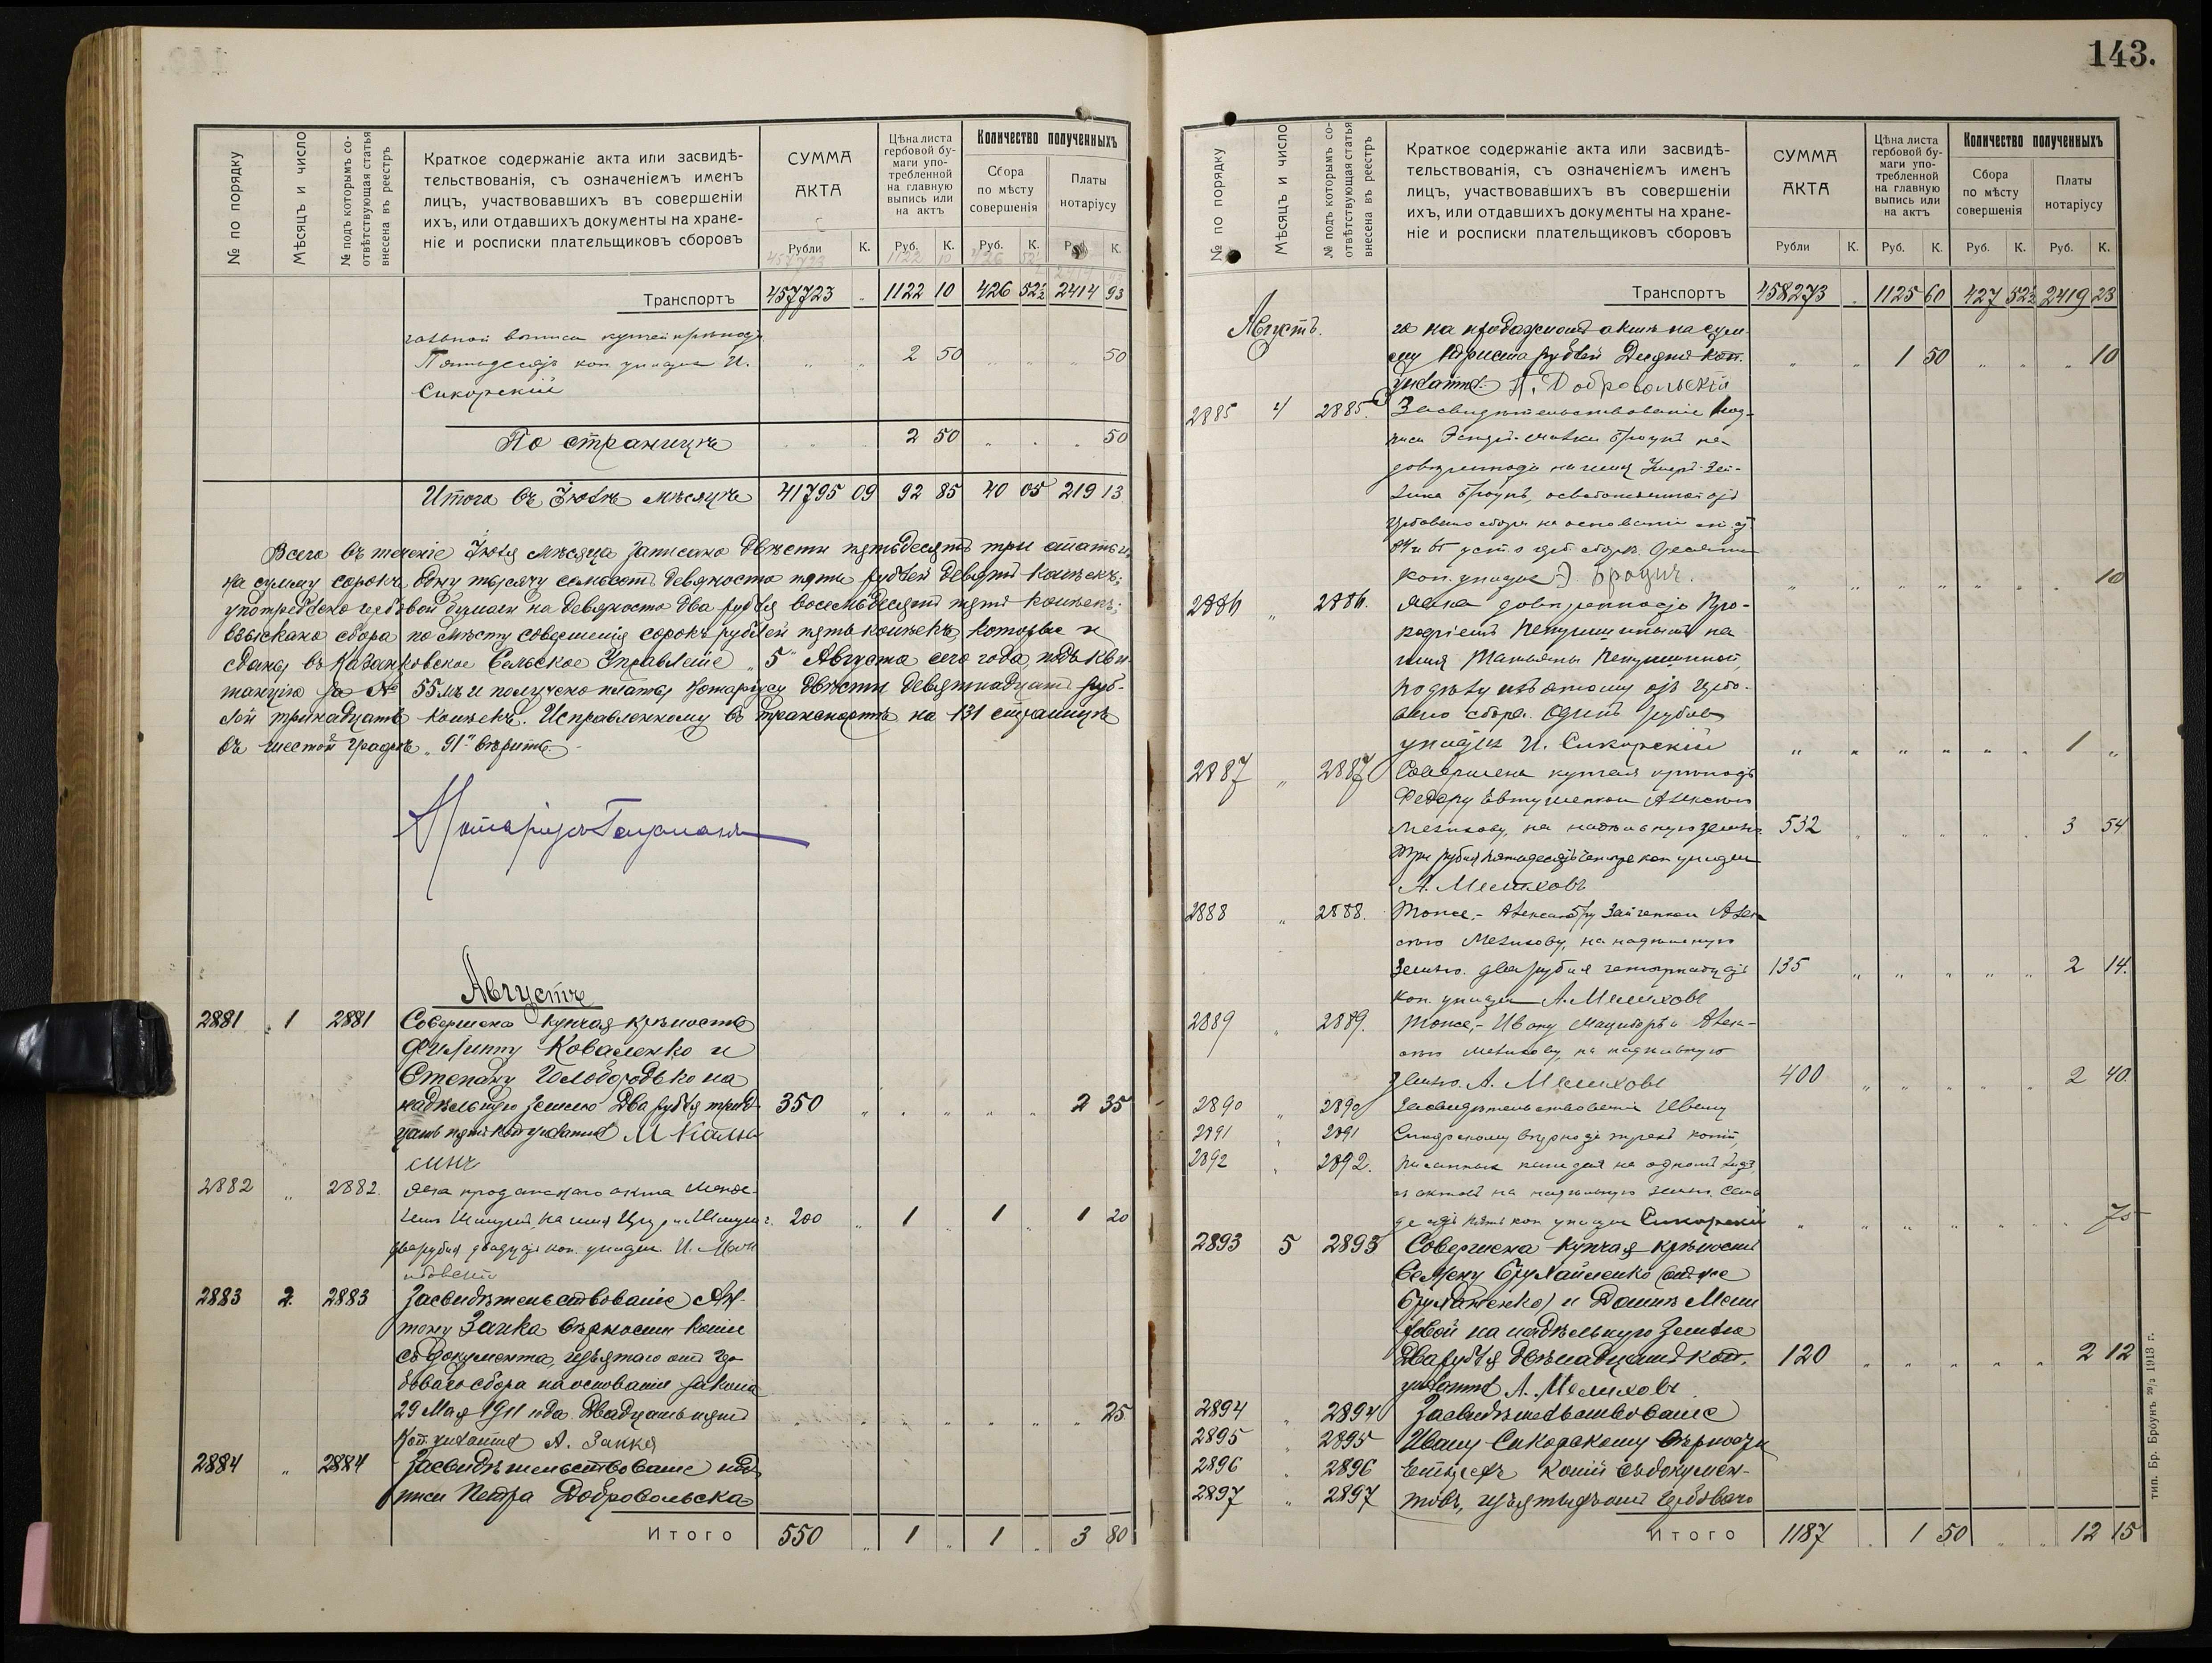 143.
№ по порядку
Мѣсяцъ и число
№ подъ которымъ со-
отвѣтствующая статья
внесена въ реестръ
Краткое содержаніе акта или засвидѣ-
тельствованія, съ означеніемъ именъ
лицъ, участвовавшихъ въ совершеніи
ихъ, или отдавшихъ документы на хране-
ніе и росписки плательщиковъ сборовъ
СУММА
АКТА
Рубли К.
Цѣна листа
гербовой бу-
маги упо-
требленной
на главную
выпись или
на актъ
Руб. К.
Количество полученныхъ
Сбора
по мѣсту
совершенія
Руб. К.
Платы
нотаріусу
Руб. К.
Транспортъ 457723 „ 1122 10 426 52½ 2414 93
купчей крѣпости
Пятьдесятъ коп уплатил И. „ „ 2 50 „ „ „ 50
Сикорскій
По страницѣ „ „ 2 50 „ „ „ 50
Итого въ Іюлѣ мѣсяцѣ 41795 09 92 85 40 05 219 13
Всего въ теченіе Іюля мѣсяца записано двѣсти пятьдесятъ три статьи
на сумму сорокъ одну тысячу семьсотъ девяносто пять рублей девять копѣекъ;
употреблено гербовой бумаги на девяносто два рубля восемьдесятъ пять копѣекъ;
взыскано сбора по мѣсту совершенія сорокъ рублей пять копѣекъ, которые и
сданы въ Казанковское Сельское Управленіе „5" Августа сего года, подъ кви-
танцію за № 55мъ и получено платы Нотаріусу двѣсти девятнадцать руб-
лей тринадцать копѣекъ. Исправленному въ транспортѣ на 131 страницѣ
въ шестой графѣ „91" вѣрить.
Нотаріусъ
Августъ
2881 1 2881 Совершена купчая крѣпость
Филиппу Коваленко и
Степану Бѣлобородько на
надѣльную землю Два рубля трид- 350 „ „ „ „ „ 2 35
цать пять коп уплатил М
2882 „ 2882. Явка продажнаго акта
на имя 200 „ 1 „ 1 „ 1 20
два рубля двадцать коп. уплатил И.
2883 2. 2883 Засвидѣтельствованіе Ан-
тону Закка вѣрности копіи
съ документа, изъятаго отъ гер-
боваго сбора на основаніи закона
29 Мая 1911 года. Двадцать пять „ „ „ „ „ „ „ 25
коп. уплатил А. Закка
2884 „ 2884 Засвидѣтельствованіе под-
писи Петра Добровольска-
Итого 550 „ 1 „ 1 „ 3 80
№ по порядку
Мѣсяцъ и число
№ подъ которымъ со-
отвѣтствующая статья
внесена въ реестръ
Краткое содержаніе акта или засвидѣ-
тельствованія, съ означеніемъ именъ
лицъ, участвовавшихъ въ совершеніи
ихъ, или отдавшихъ документы на хране-
ніе и росписки плательщиковъ сборовъ
СУММА
АКТА
Рубли К.
Цѣна листа
гербовой бу-
маги упо-
требленной
на главную
выпись или
на актъ
Руб. К.
Количество полученныхъ
Сбора
по мѣсту
совершенія
Руб. К.
Платы
нотаріусу
Руб. К.
Транспортъ 458273 „ 1125 60 427 52½ 2419 23
Августъ. го на продажномъ актѣ на сум-
му Триста рублей Десять коп. „ „ 1 50 „ „ „ 10
уплатил. П. Добровольскій
2885 4 2885. Засвидѣтельствованіе под-
писи Броунъ на
довѣренности на имя
Броунъ, освобожденной отъ
гербоваго сбора на основаніи
уст. о герб. сборѣ. Десять
коп. уплатил Э Броунъ. „ „ „ „ „ „ „ 10
2886 „ 2886. Явка довѣренности Про-
на
имя Татьяны
отъ гербо-
ваго сбора. Одинъ рубль
уплатил И. Сикорскій „ „ „ „ „ „ 1 „
2887 „ 2887 Совершена купчая крѣпость
Федору Евтушенко Алексѣю
Мелихову, на надѣльную землю 532 „ „ „ „ „ 3 54
Три рубля пятьдесятъ четыре коп уплатил
А. Мелиховъ
2888 „ 2888. Тоже,- Александру Зайченко и Алек-
сѣю Мелихову, на надѣльную
землю. два рубля четырнадцать 135 „ „ „ „ „ 2 14.
коп. уплатил А. Мелиховъ
2889 „ 2889. Тоже,- Ивану и Алек-
сѣю Мелихову, на надѣльную
землю. А. Мелиховъ 400 „ „ „ „ „ 2 40.
2890 „ 2890 Засвидѣтельствованіе Ивану
2891 „ 2891 Сикорскому вѣрности трехъ копій,
2892 „ 2892. писанныхъ каждая на одномъ листѣ,
съ актовъ на надѣльную землю. Семь-
десятъ пять коп уплатил Сикорскій „ „ „ „ „ „ „ 75
2893 5 2893 Совершена купчая крѣпость
Семену (онъ же
) и Домнѣ
на надѣльную землю
Два рубля двѣнадцать коп. 120 „ „ „ „ „ 2 12
уплатил А. Мелиховъ.
2894 „ 2894 Засвидѣтельствованіе
2895 „ 2895 Ивану Сикорскому вѣрности
2896 „ 2896 четырехъ копій съ докумен-
2897 „ 2897 товъ, изъятыхъ отъ гербоваго
Итого 1187 „ 1 50 „ „ 12 15
тип. Бр. Броунъ 29/3 1913 г.